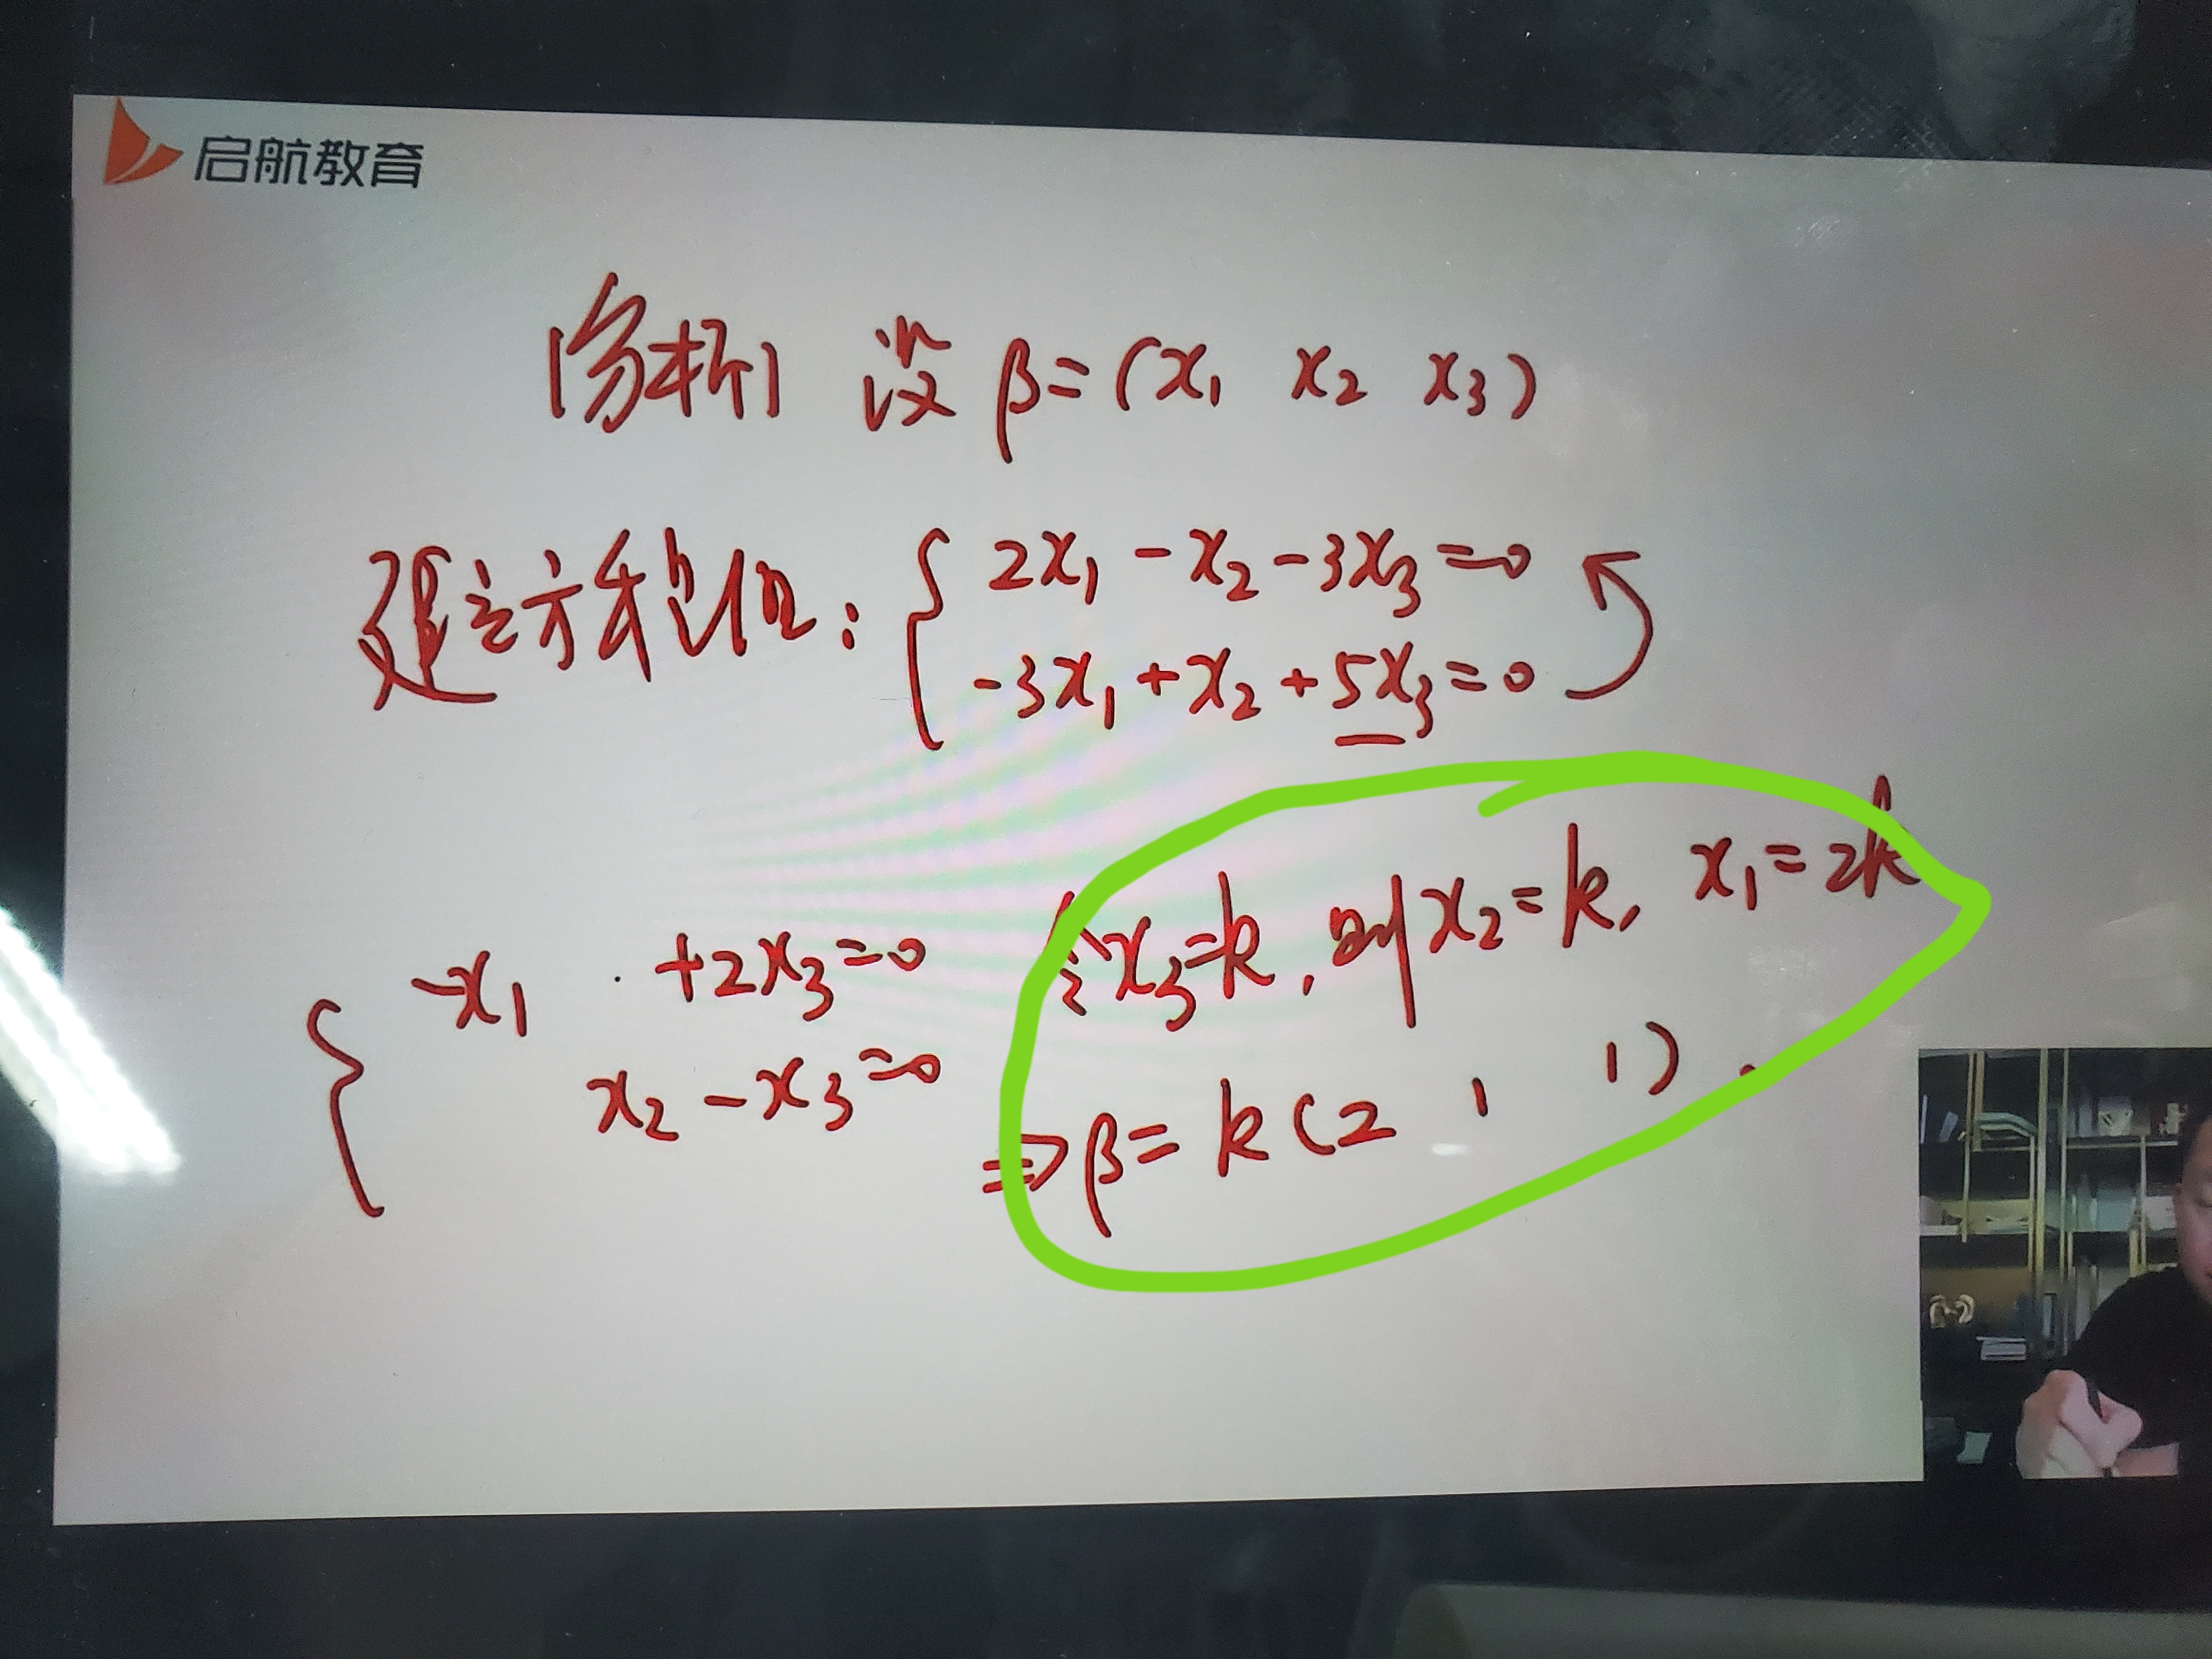 启航教育
[分析] 设 β=(x₁ x₂ x₃)
建立方程组: { 2x₁ - x₂ - 3x₃ = 0
-3x₁ + x₂ + 5x₃ = 0
{ -x₁ +2x₃ = 0
x₂ - x₃ = 0
令x₃=k, 则x₂=k, x₁=2k
⇒β= k(2 1 1).